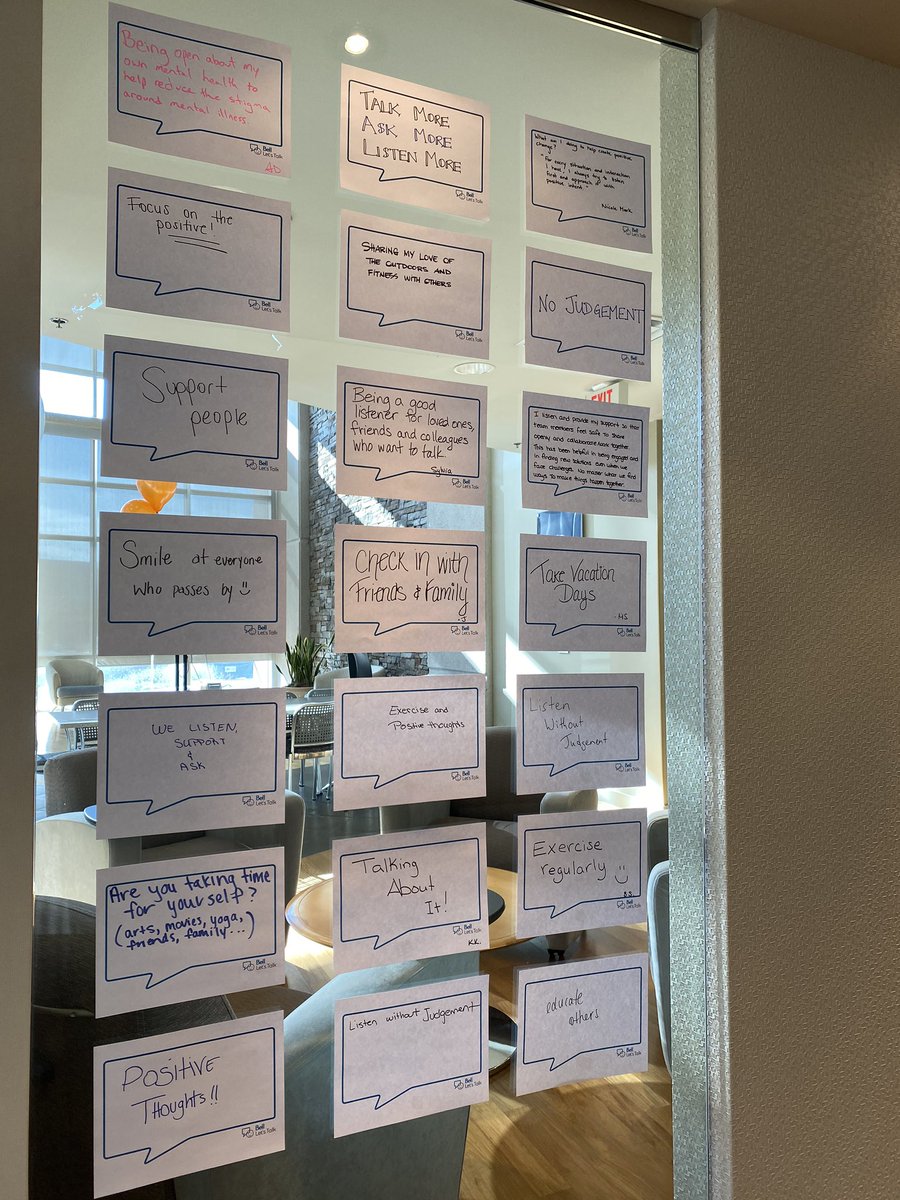 Being open about my
own mental health to
help reduce the stigma
around mental illness.
Bell
Let's Talk
AD
Focus on the
positive!
Bell
Let's Talk
Support
people
Bell
Let's Talk
Smile at everyone
who passes by
Bell
Let's Talk
WE LISTEN,
SUPPORT
&
ASK
Bell
Let's Talk
Are you taking time
for yourself?
(arts, movies, yoga,
friends, family...)
Bell
Let's Talk
POSITIVE
THOUGHTS!!
Bell
Let's Talk
TALK MORE
ASK MORE
LISTEN MORE
Bell
Let's Talk
SHARING MY LOVE OF
THE OUTDOORS AND
FITNESS WITH OTHERS
Bell
Let's Talk
Being a good
listener for loved ones,
friends and colleagues
who want to talk
Sylvia
Bell
Let's Talk
CHECK IN WITH
FRIENDS & FAMILY
-J
Bell
Let's Talk
Exercise and
Positive thoughts
Bell
Let's Talk
Talking
About
It!
KK.
Bell
Let's Talk
Listen without Judgement
Bell
Let's Talk
What am I doing to help create positive
change?
"For every situation and interaction
I have, I always try to listen
first and approach it with
positive intent."
Nicole Mark
Bell
Let's Talk
NO JUDGEMENT
Bell
Let's Talk
EXIT
I listen and provide my support so that
team members feel safe to share
openly and collaborate work together.
This has been helpful in being engaged and
in finding new solutions even when we
face challenges. No matter what we find
ways to make things happen together.
Bell
Let's Talk
Take Vacation
Days
-MS
Bell
Let's Talk
Listen
Without
Judgement
Bell
Let's Talk
Exercise
regularly
S.S.
Bell
Let's Talk
educate
others
Bell
Let's Talk